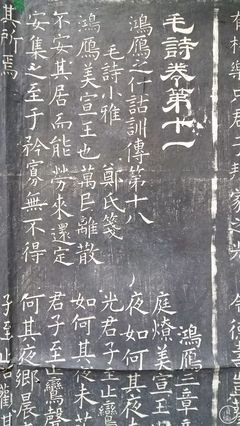 毛詩卷第十一
鴻鴈之什詁訓傳第十八
毛詩小雅 鄭氏箋
鴻鴈美宣王也萬民離散
不安其居而能勞來還定
安集之至于矜寡無不得
其所焉
鴻鴈三章章
庭燎美宣王
夜如何其夜
光君子至止鸞
如何其夜未艾
君子至止鸞聲
何其夜鄉晨
子至止言觀其